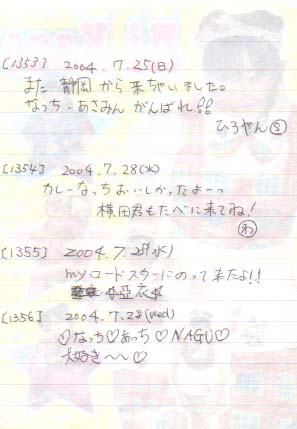 [1353] 2004.7.25(日)
また 静岡 から 来ちゃいました。
なっち・あさみん がんばれ!!
ひろやん
[1354] 2004.7.28(水)
カレーなっちおいしかったよーっ
横田君もたべに来てね!
わ
[1355] 2004.7.28(水)
myロードスターにのって来たよ!!
亞衣
[1356] 2004.7.28(wed)
♡なっち♡あっち♡NAGU♡
大好き〜〜♡